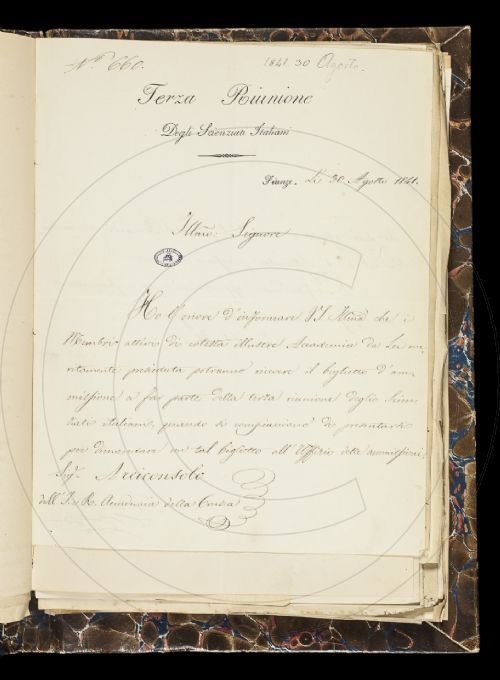 N.º 660.
1841. 30 Agosto.
Terza Riunione
Degli Scienziati Italiani
Firenze. Li 30 Agosto 1841.
Illmo: Signore
Ho l'onore d'informare V.S. Illma che i
Membri attivi di cotesta illustre Accademia da Lei me-
ritamente preseduta potranno ricevere il biglietto d'am-
missione a far parte della terza riunione degli Scien-
ziati italiani, quando si compiacciano di presentarsi
per dimandare un tal biglietto all'Uffizio delle ammissioni.
Sig.r Arciconsolo
dell'I. e R. Accademia della Crusca